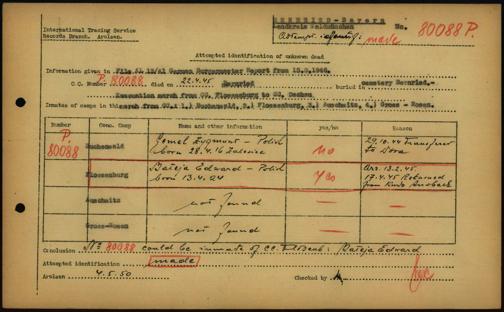 International Tracing Service
Records Branch. Arolsen.
BERNRIED-Bavern
Landkreis
No. 80088 P.
Attempt. identify: made
Attempted identification of unknown dead
Information given in File 41 12/41 German Burgermeister Report from 15.8.1946.
C.C. Number P. 80088 died on 22.4.45 Bernried buried in cemetery Bernried.-
Evacuation march from CC. Flossenburg to CC. Dachau
Inmates of camps in this march from CC.: 1.) Buchenwald, 2.) Flossenburg, 3.) Auschwitz, 4.) Gross - Rosen.
Number Conc. Camp Name and other information yes/no Reason
P 80088
Buchenwald Zygmunt - Polish born 28.4.16 no 29.10.44 Transferred to Dora
Flossenburg Bateja Edward - Polish born 13.4.24 yes Arr. 13.2.45 17.4.45 Returned from Kdo.
Auschwitz not found — —
Gross-Rosen not found — —
Conclusion No 80088 could be inmate of CC. Flossenb: Bateja Edward
Attempted identification made
Arolsen 4.5.50 Checked by